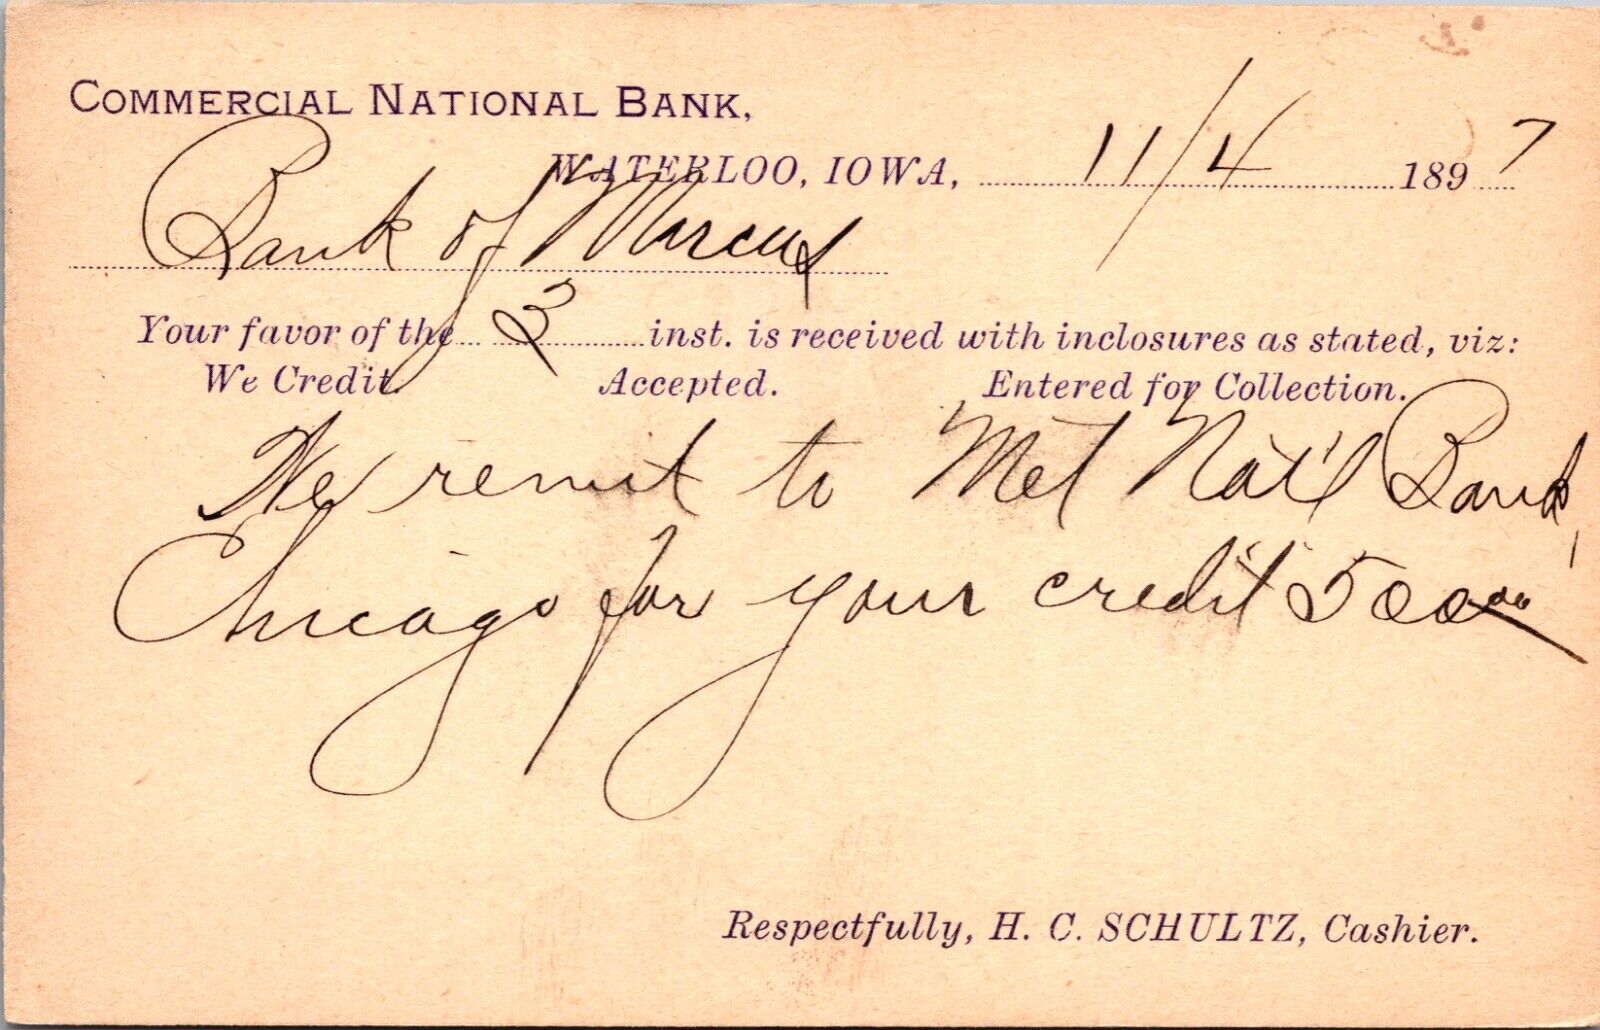 COMMERCIAL NATIONAL BANK,
WATERLOO, IOWA, 11/4 1897
Bank of Marcus
Your favor of the 3 inst. is received with inclosures as stated, viz:
We Credit. Accepted. Entered for Collection.
We remit to Met Nat'l Bank,
Chicago for your credit 500.00
Respectfully, H. C. SCHULTZ, Cashier.